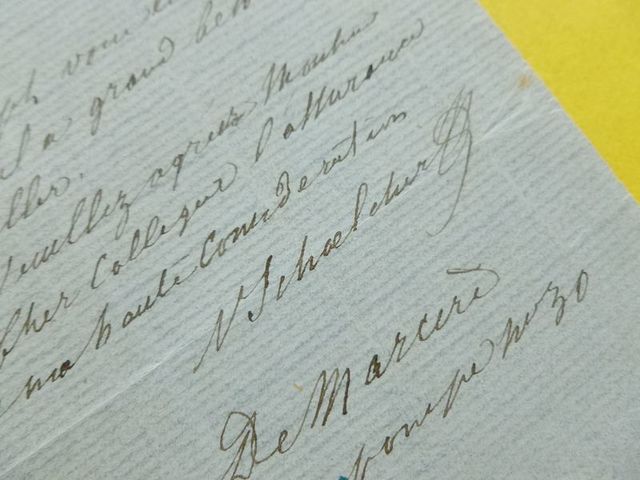 vous
a grand
veuillez agréez Monsieur
Cher Collegue l'assurance
ma haute consideration
V Schoelcher
De Marceré
pompe no 30